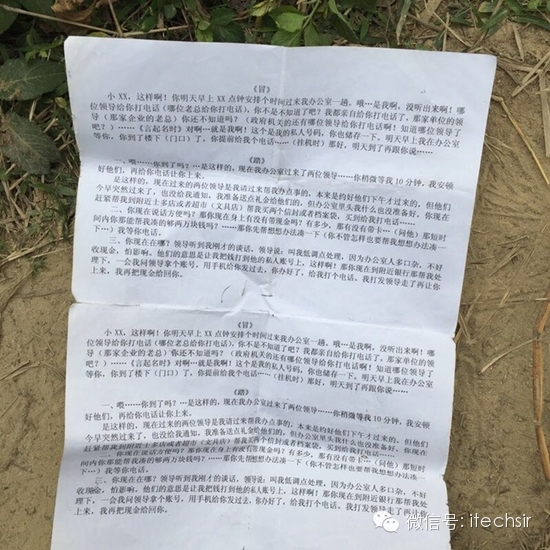 《冒》
小 XX，这样啊！你明天早上 XX 点钟安排个时间过来我办公室一趟。哦…是我啊，没听出来啊！哪
位领导给你打电话（哪位老总给你打电话），你不是不知道了吧？我都亲自给你打电话了，那家单位的领
导（那家企业的老总）你还不知道吗？（政府机关的还有哪位领导给你打电话啊！知道哪位领导了
吧？）……《言起名时》对啊…就是我啊！这个是我的私人号码，你也储存一下。明天早上我在办公室
等你，你到了楼下（门口）了，你提前给我个电话……（挂机时）那好，明天到了再跟你说……
《踏》
一、喂……你到了吗？…是这样的，现在我办公室过来了两位领导……你稍微等我 10 分钟，我安顿
好他们，再给你电话让你上来。
是这样的，现在过来的两位领导是我请过来帮我办点事的，本来是约好他们下午才过来的，但他们
今早突然过来了，也没给我通知，我准备送点礼金给他们的，但办公室里头我什么也没准备好，你现在
赶紧帮我到附近士多店或者超市（文具店）帮我买两个信封或者档案袋，买到给我打电话……
二、你现在说话方便吗？那你现在身上有没有带现金吗？有多少，那有没有带卡…（问他）那短时
间内你那能帮我凑的够两万块钱吗？……那你先帮想想办法凑一下（你不管怎样也要帮我想想办法凑一
下）我等你电话。
三、你现在在哪？领导听到我刚才的谈话，领导说：叫我低调点处理，因为办公室人多口杂，不好
收现金，怕影响。他们的意思是让我把钱打到他的私人账号上，这样吧，那你现在到附近银行那帮我处
理下，一会我问领导拿个账号，用手机给你发过去，你办好了，给我打个电话，我打发领导走了再让你
上来，我再把现金给回你。
《冒》
小 XX，这样啊！你明天早上 XX 点钟安排个时间过来我办公室一趟。哦…是我啊，没听出来啊！哪
位领导给你打电话（哪位老总给你打电话），你不是不知道了吧？我都亲自给你打电话了，那家单位的领
导（那家企业的老总）你还不知道吗？（政府机关的还有哪位领导给你打电话啊！知道哪位领导了
吧？）……《言起名时》对啊…就是我啊！这个是我的私人号码，你也储存一下。明天早上我在办公室
等你，你到了楼下（门口）了，你提前给我个电话……（挂机时）那好，明天到了再跟你说……
《踏》
一、喂……你到了吗？…是这样的，现在我办公室过来了两位领导……你稍微等我 10 分钟，我安顿
好他们，再给你电话让你上来。
是这样的，现在过来的两位领导是我请过来帮我办点事的，本来是约好他们下午才过来的，但他们
今早突然过来了，也没给我通知，我准备送点礼金给他们的，但办公室里头我什么也没准备好，你现在
赶紧帮我到附近士多店或者超市（文具店）帮我买两个信封或者档案袋，买到给我打电话……
二、你现在说话方便吗？那你现在身上有没有带现金吗？有多少，那有没有带卡…（问他）那短时
间内你那能帮我凑的够两万块钱吗？……那你先帮想想办法凑一下（你不管怎样也要帮我想想办法凑一
下）我等你电话。
三、你现在在哪？领导听到我刚才的谈话，领导说：叫我低调点处理，因为办公室人多口杂，不好
收现金，怕影响。他们的意思是让我把钱打到他的私人账号上，这样吧，那你现在到附近银行那帮我处
理下，一会我问领导拿个账号，用手机给你发过去，你办好了，给我打个电话，我打发领导走了再让你
上来，我再把现金给回你。
微信号: itechsir